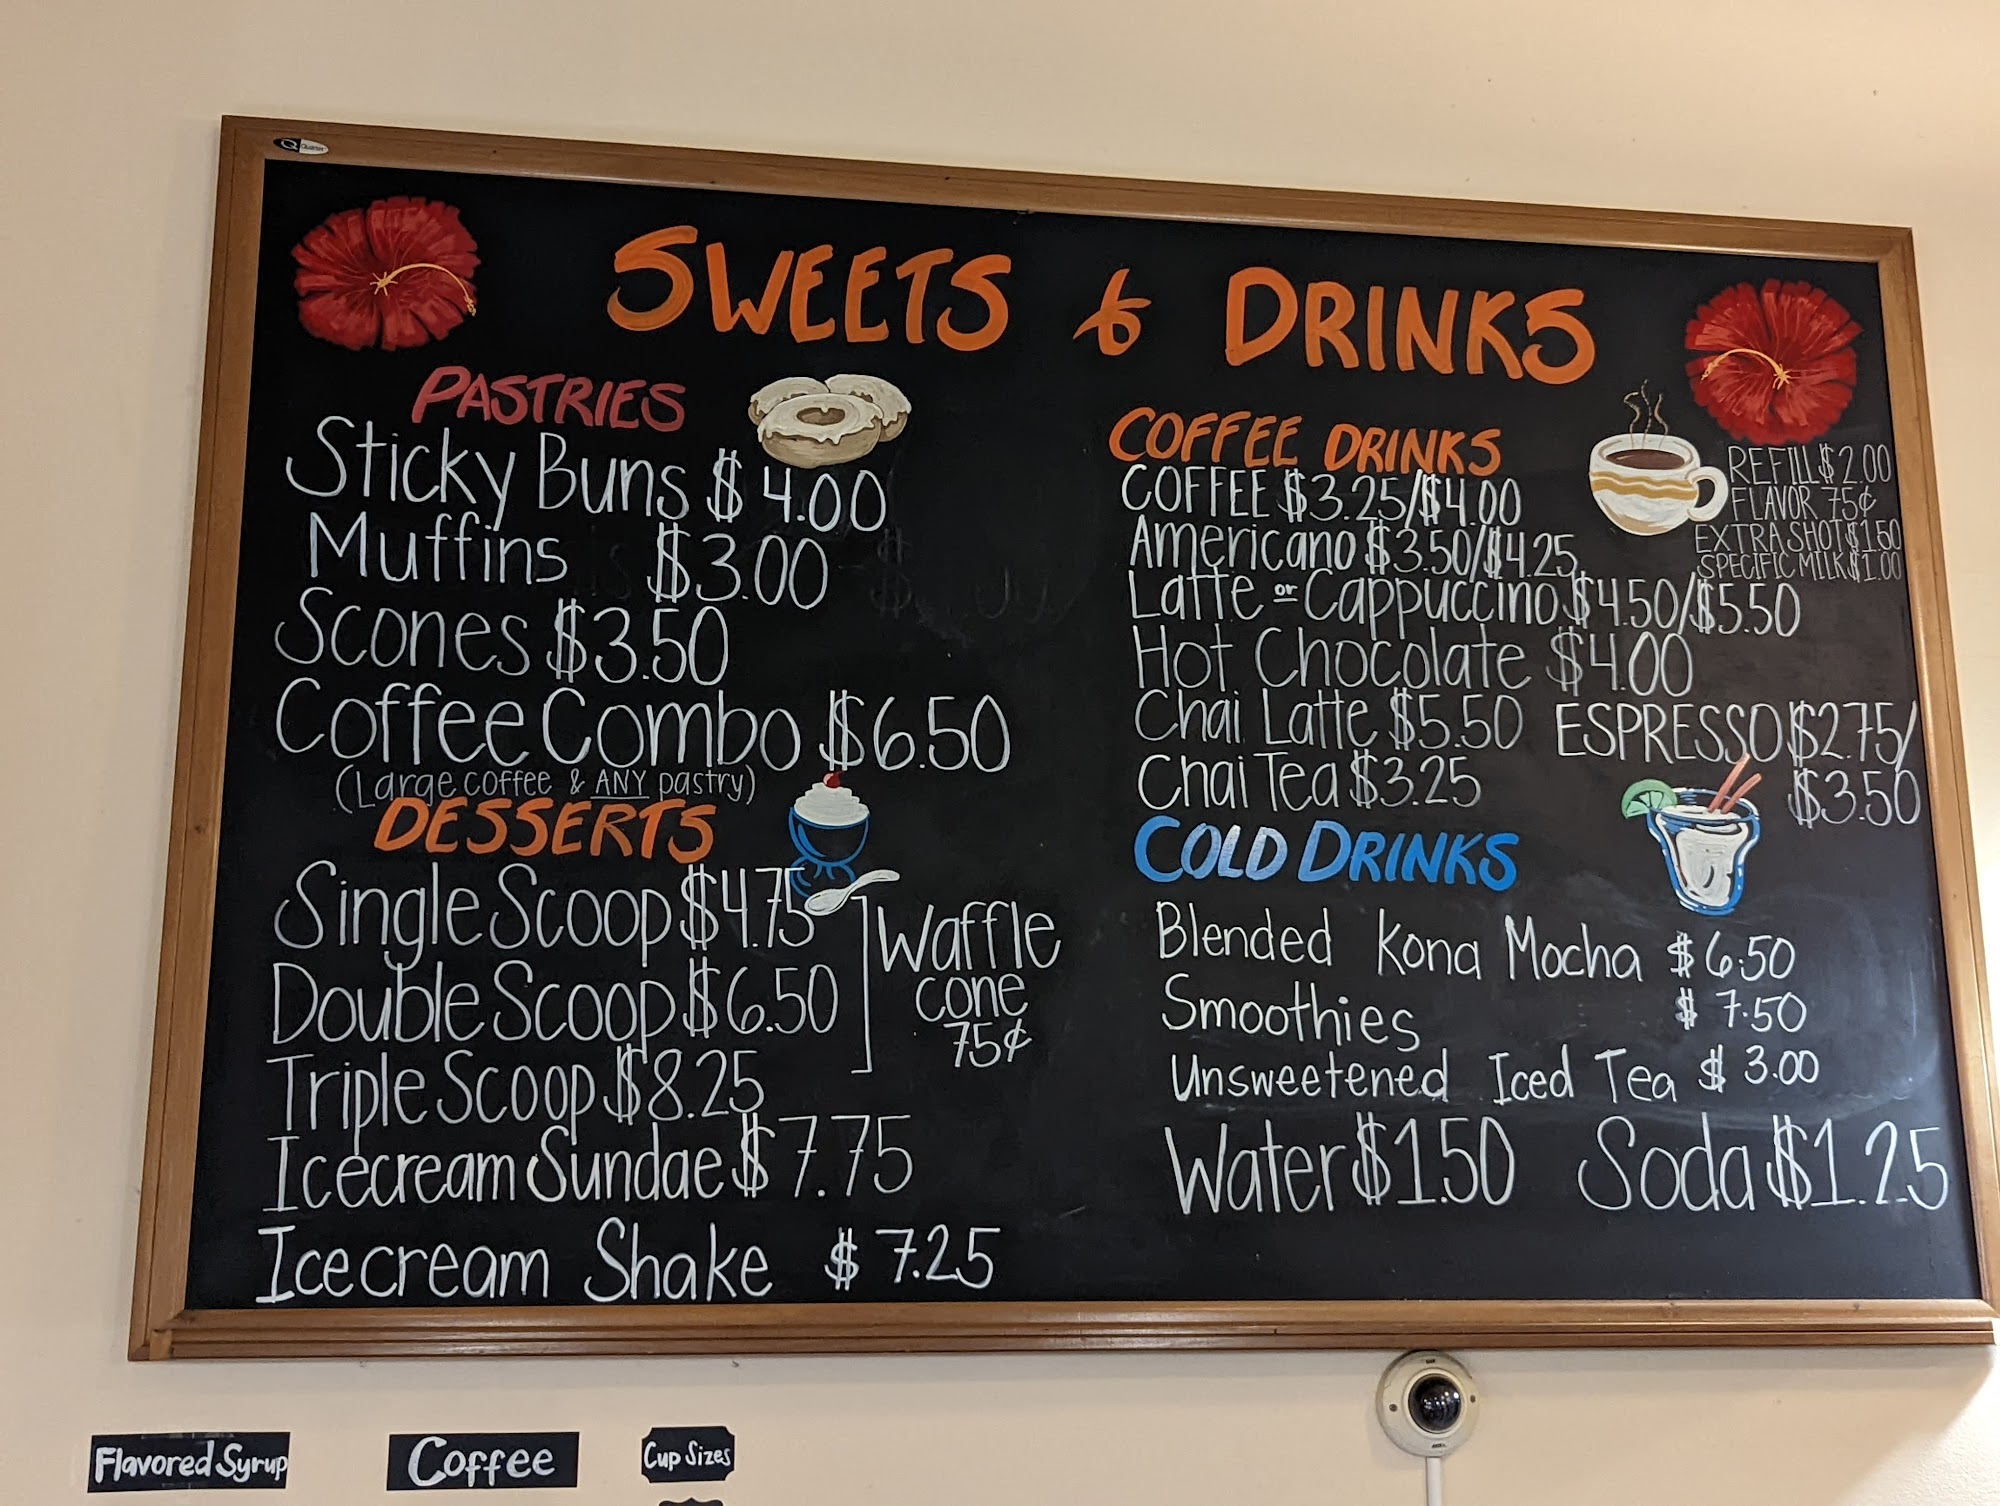 Quartet
SWEETS & DRINKS
PASTRIES
Sticky Buns $4.00
Muffins $3.00
Scones $3.50
Coffee Combo $6.50
(Large coffee & ANY pastry)
DESSERTS
Single Scoop $4.75
Double Scoop $6.50
Triple Scoop $8.25
Waffle
cone
75¢
Icecream Sundae $7.75
Icecream Shake $7.25
COFFEE DRINKS
COFFEE $3.25/$4.00
Americano $3.50/$4.25
Latte or Cappuccino $4.50/$5.50
Hot Chocolate $4.00
Chai Latte $5.50
Chai Tea $3.25
REFILL $2.00
FLAVOR 75¢
EXTRA SHOT $1.50
SPECIFIC MILK $1.00
ESPRESSO $2.75/
$3.50
COLD DRINKS
Blended Kona Mocha $6.50
Smoothies $7.50
Unsweetened Iced Tea $3.00
Water $1.50 Soda $1.25
Flavored Syrup
Coffee
Cup Sizes